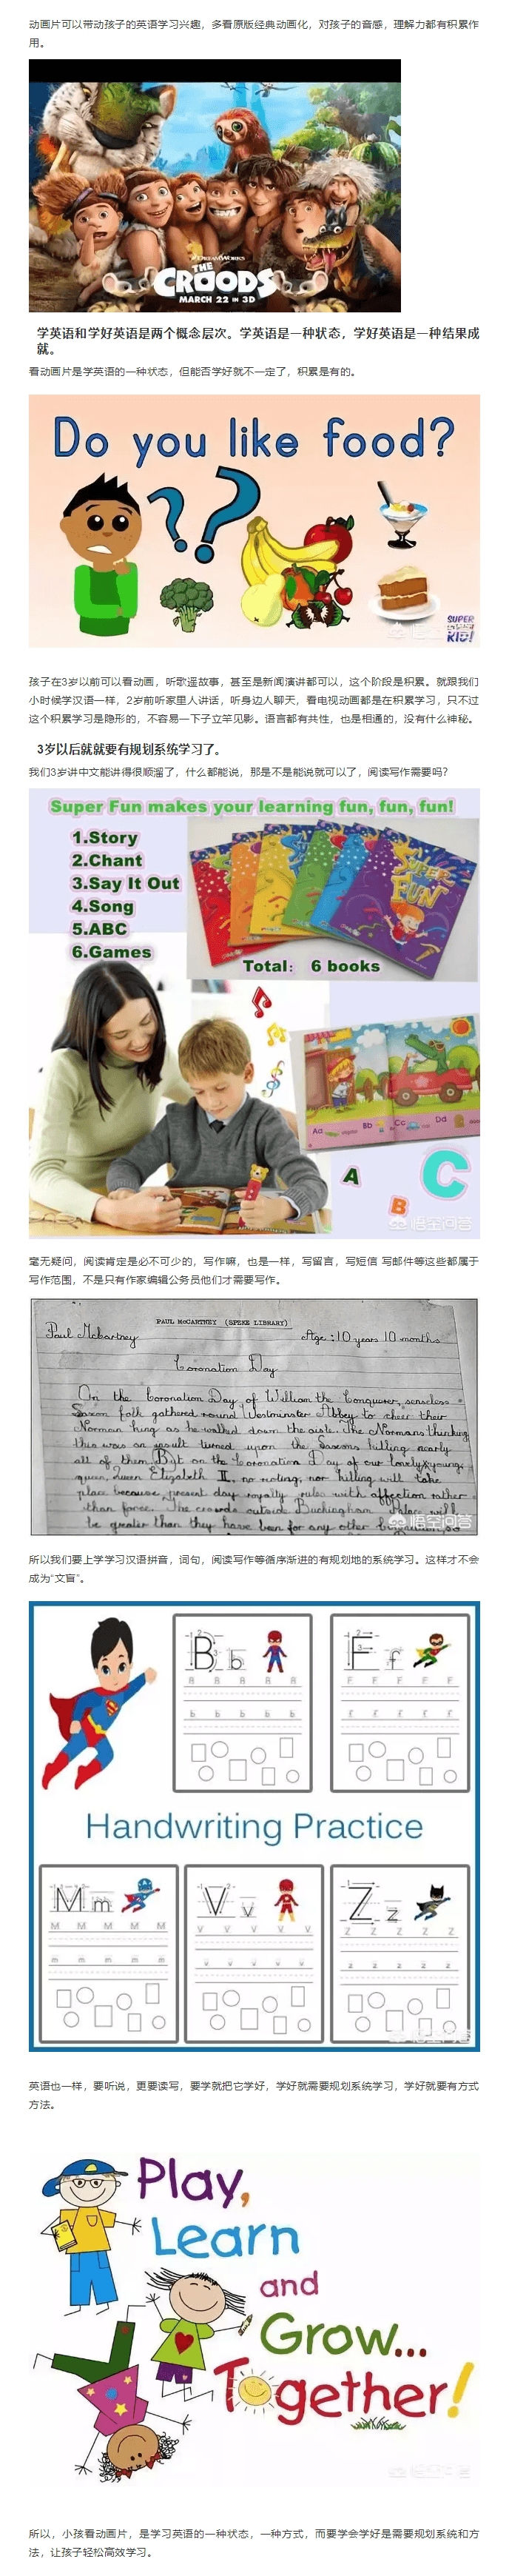 动画片可以带动孩子的英语学习兴趣，多看原版经典动画化，对孩子的音感，理解力都有积累作
用。
DREAMWORKS
THE
CROODS
MARCH 22 IN 3D
学英语和学好英语是两个概念层次。学英语是一种状态，学好英语是一种结果成
就。
看动画片是学英语的一种状态，但能否学好就不一定了，积累是有的。
Do you like food?
SUPER
悟空问答
KID!
孩子在3岁以前可以看动画，听歌谣故事，甚至是新闻演讲都可以，这个阶段是积累。就跟我们
小时候学汉语一样，2岁前听家里人讲话，听身边人聊天，看电视动画都是在积累学习，只不过
这个积累学习是隐形的，不容易一下子立竿见影。语言都有共性，也是相通的，没有什么神秘。
3岁以后就就要有规划系统学习了。
我们3岁讲中文能讲得很顺溜了，什么都能说，那是不是能说就可以了，阅读写作需要吗？
Super Fun makes your learning fun, fun, fun!
1.Story
2.Chant
3.Say It Out
4.Song
5.ABC
6.Games
SUPER FUN
Total: 6 books
Aa Bb Cc Dd
A
B
C
悟空问答
毫无疑问，阅读肯定是必不可少的，写作嘛，也是一样，写留言，写短信 写邮件等这些都属于
写作范围，不是只有作家编辑公务员他们才需要写作。
PAUL McCARTNEY (SPEKE LIBRARY)
Paul Mckartney Age: 10 years 10 months
Coronation Day
On the Coronation Day of William the Conqueror, senseless
Saxon folk gathered round Westminster Abbey to cheer their
Norman king as he walked down the aisle. The Normans thinking
this was an insult turned upon the Saxons killing nearly
all of them. But on the Coronation Day of our lovely young
queen, Queen Elizabeth II, no rioting, nor killing will take
place because present day royalty rules with affection rather
than force. The crowds outside Buckingham Palace will
be greater than they have been for any other
悟空问答
所以我们要上学学习汉语拼音，词句，阅读写作等循序渐进的有规划地的系统学习。这样才不会
成为“文盲”。
B b
B B B B B
b b b b b
F f
F F F F F
f f f f f
Handwriting Practice
M m
M M M M M
m m m m m
V v
V V V V V
v v v v v
Z z
Z Z Z Z Z
z z z z z
悟空问答
英语也一样，要听说，更要读写，要学就把它学好，学好就需要规划系统学习，学好就要有方式
方法。
Play,
Learn
and
Grow...
Together!
所以，小孩看动画片，是学习英语的一种状态，一种方式，而要学会学好是需要规划系统和方
法，让孩子轻松高效学习。